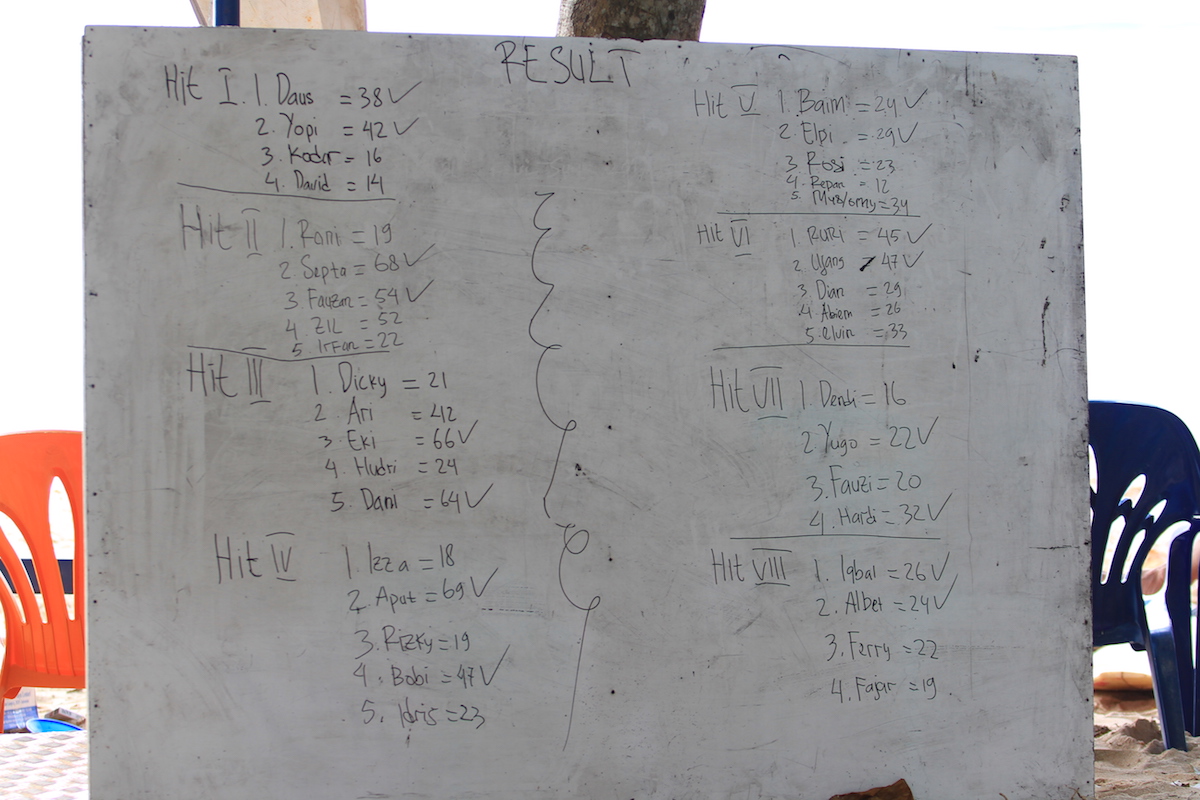 RESULT
Hit I. 1. Daus = 38 ✓
2. Yopi = 42 ✓
3. Kodir = 16
4. David = 14
Hit II 1. Roni = 19
2. Septa = 68 ✓
3. Fauzan = 54 ✓
4 ZIL = 52
5. Irfan = 22
Hit III 1. Dicky = 21
2. Ari = 42
3. Eki = 66 ✓
4. Hudri = 24
5. Dani = 64 ✓
Hit IV 1. Izza = 18
2. Aput = 69 ✓
3. Rizky = 19
4. Bobi = 47 ✓
5. Idris = 23
Hit V 1. Baim = 24 ✓
2. Elpi = 29 ✓
3. Rosi = 23
4. Repan = 12
5. = 34
Hit VI 1. RURI = 45 ✓
2. Ujang = 47 ✓
3. Dian = 29
4. Abiem = 26
5. elvin = 33
Hit VII 1. Dendi = 16
2. Yugo = 22 ✓
3. Fauzi = 20
4. Hardi = 32 ✓
Hit VIII 1. Iqbal = 26 ✓
2. Albet = 24 ✓
3. Ferry = 22
4. Fajar = 19